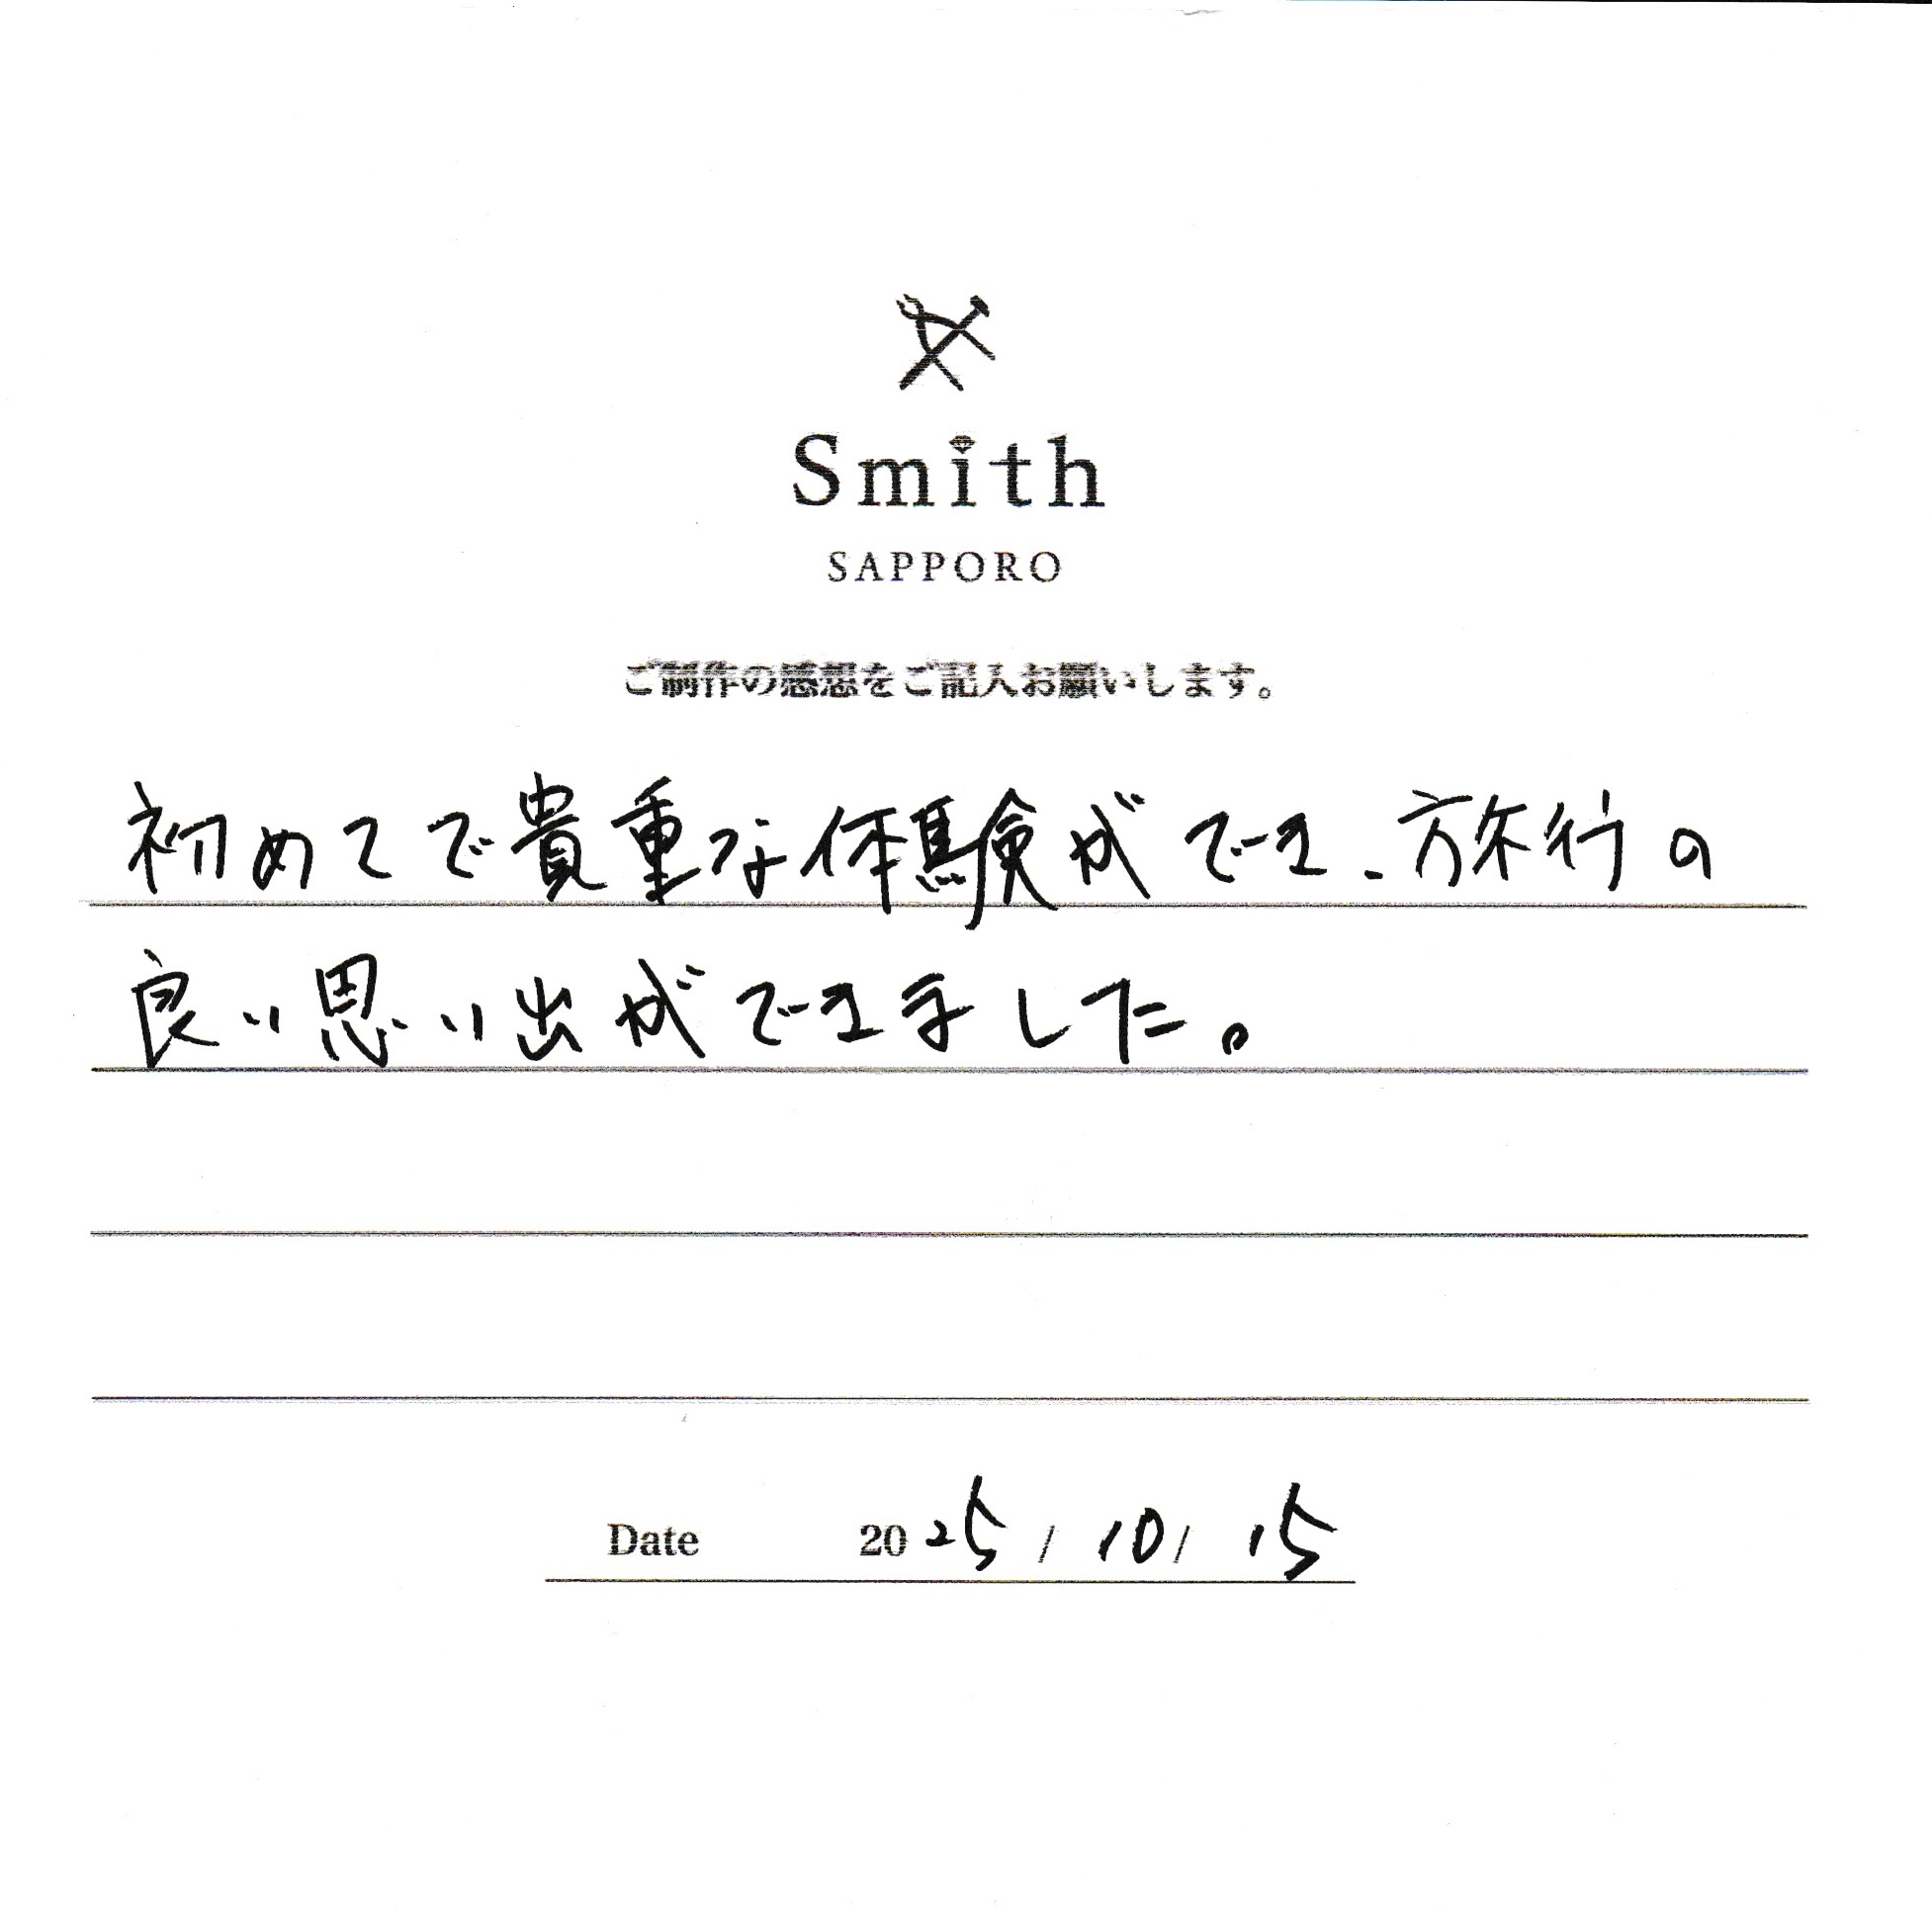 Smith
SAPPORO
ご制作の感想をご記入お願いします。
初めてで貴重な体験ができ、旅行の
良い思い出ができました。
Date 2025 / 10 / 15